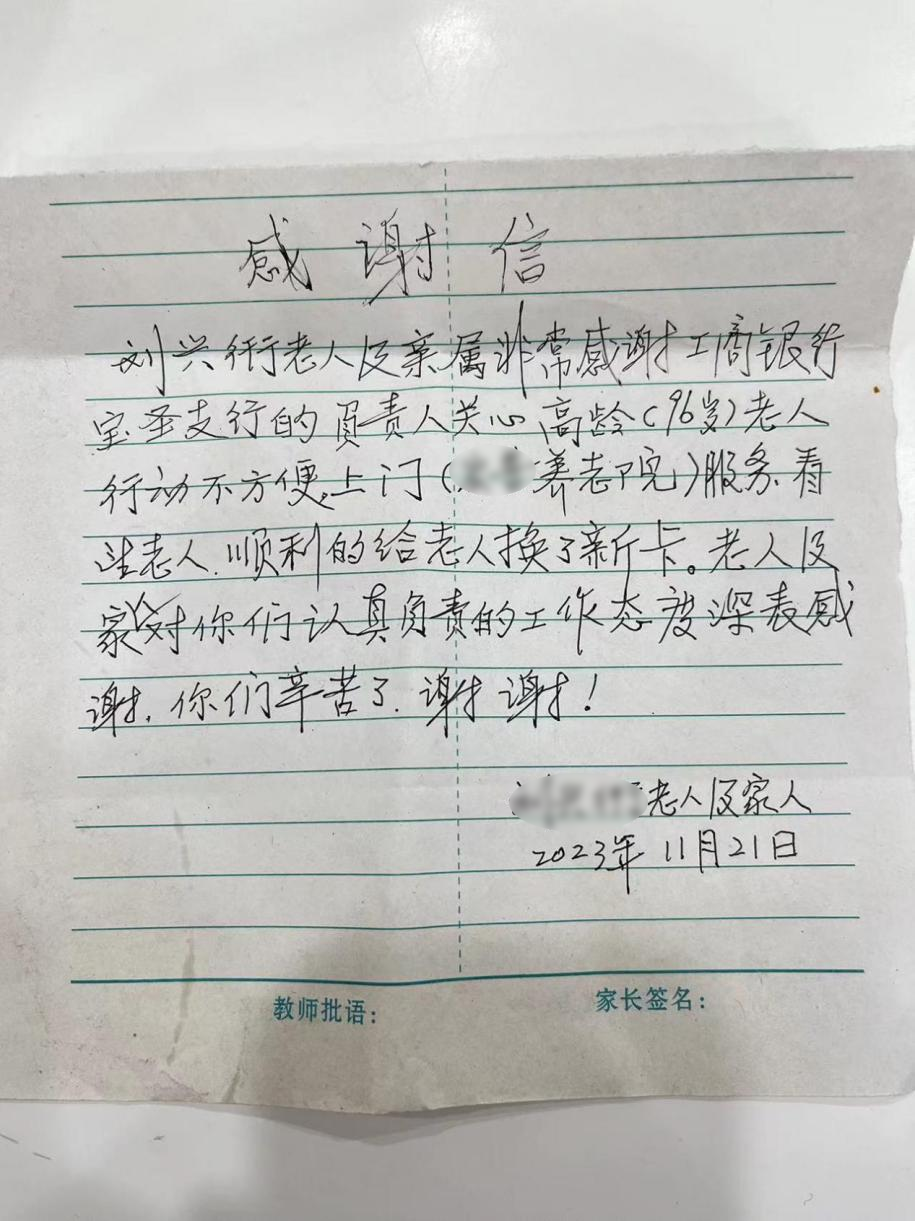 感谢信
刘兴衍老人及亲属非常感谢工商银行
宝圣支行的负责人关心高龄(96岁)老人
行动不方便,上门(养老院)服务.看
望老人.顺利的给老人换了新卡。老人及
家人对你们认真负责的工作态度深表感
谢.你们辛苦了.谢谢!
老人及家人
2023年11月21日
教师批语: 家长签名: